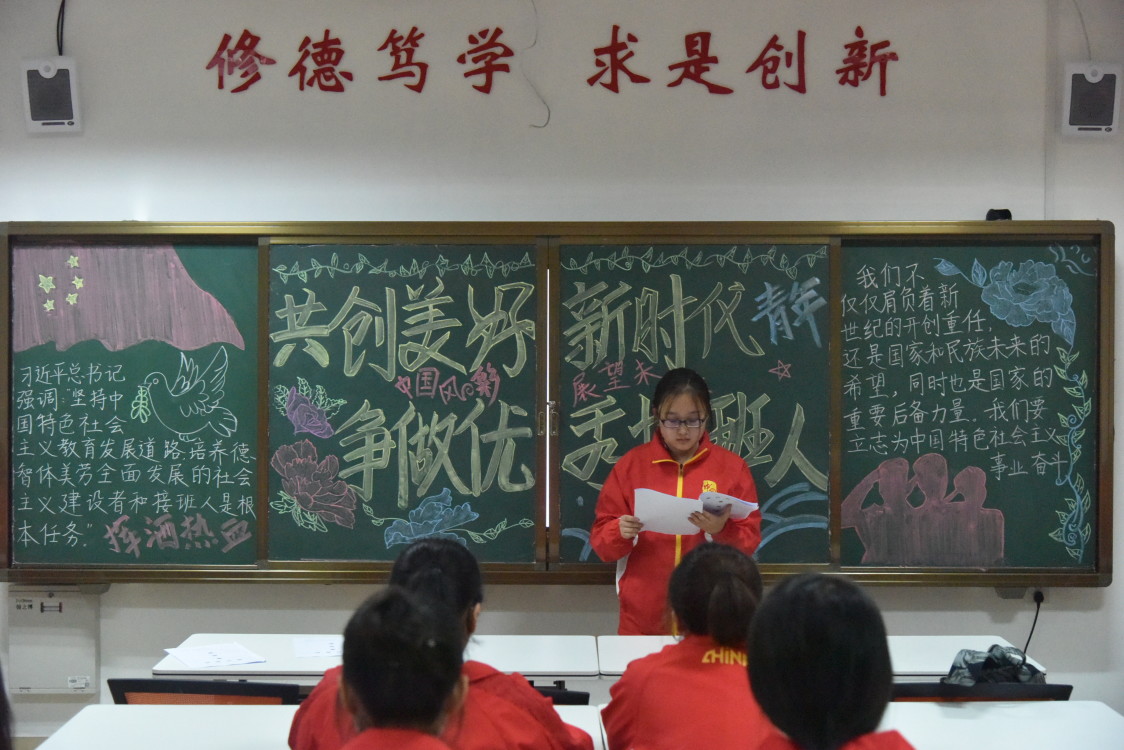 修德笃学 求是创新
习近平总书记
强调:“坚持中
国特色社会
主义教育发展道路,培养德
智体美劳全面发展的社会
主义建设者和接班人是根
本任务.”
挥洒热血
共创美好
中国风彩
争做优
新时代
青年
展望未
秀
班人
我们不
仅仅肩负着新
世纪的开创重任,
还是国家和民族未来的
希望,同时也是国家的
重要后备力量.我们要
立志为中国特色社会主义
事业奋斗
CHIN